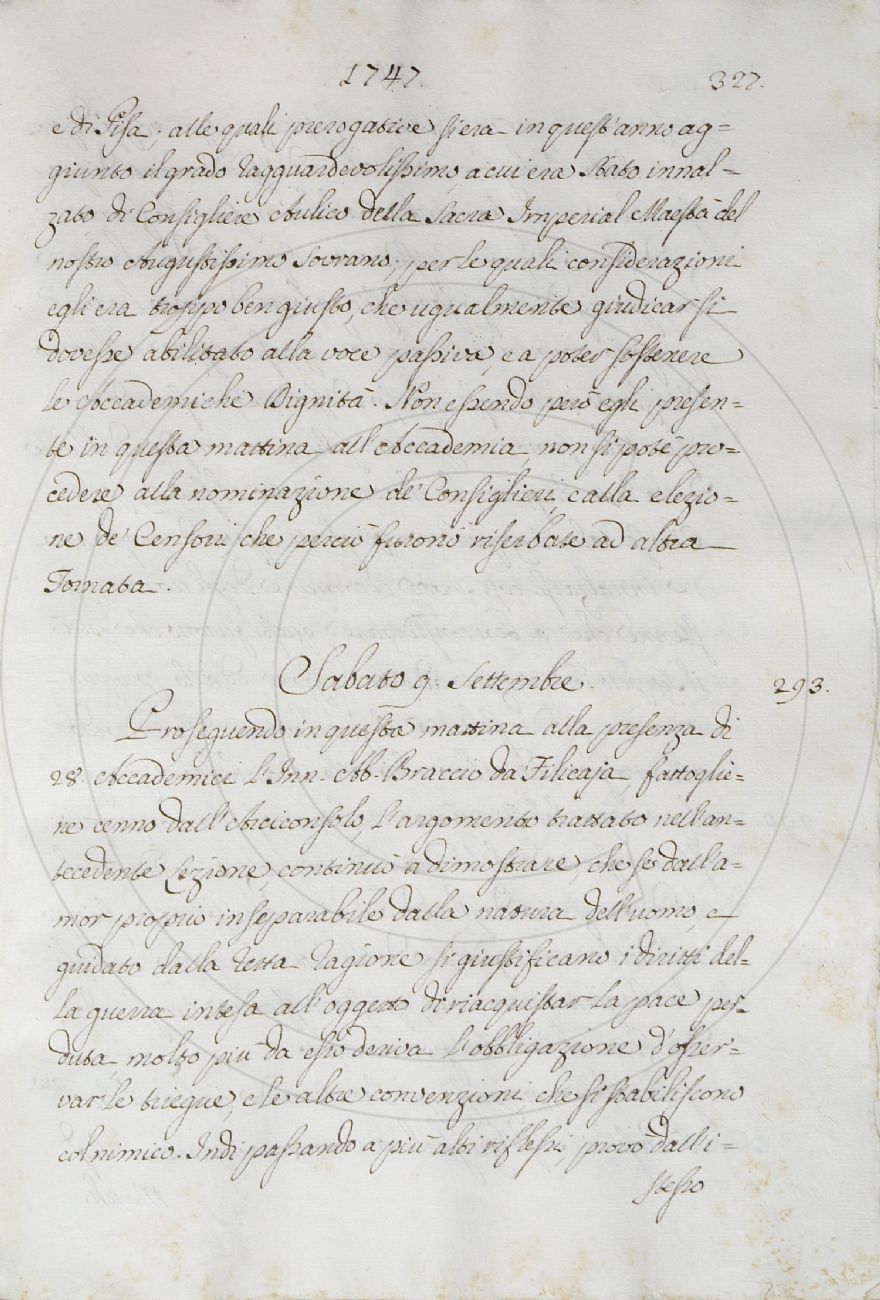 1747.
327.
e di Pisa; alle quali prerogative si era in quest'anno ag=
giunto il grado ragguardevolissimo, a cui era stato innal=
zato, di Consigliere Aulico della Sacra Imperial Maestà del
nostro Augustissimo Sovrano; per le quali considerazioni
egli era troppo ben giusto, che ugualmente giudicar si
dovesse abilitato alla voce passiva, e a poter sostenere
le Accademiche Dignità. Non essendo però egli presen=
te in questa mattina all'Accademia non si potè pro=
cedere alla nominazione de' Consiglieri, e alla elezio=
ne de' Censori che perciò furono riserbate ad altra
Tornata.
Sabato 9. Settembre.
293.
Proseguendo in questa mattina alla presenza di
28. Accademici l'Inn. Ab. Braccio da Filicaja, fattoglie=
ne cenno dall'Arciconsolo, l'argomento trattato nell'an=
tecedente Lezione, continuò a dimostrare, che se dall'a=
mor proprio inseparabile dalla natura dell'uomo, e
guidato dalla retta ragione si giustificano i diritti del=
la guerra intesa all'oggetto di riacquistar la pace per=
duta, molto più da esso deriva l'obbligazione d'osser=
var le triegue, e le altre convenzioni, che si stabiliscono
col nimico. Indi passando a più alti riflessi, provò dall'i=
stesso